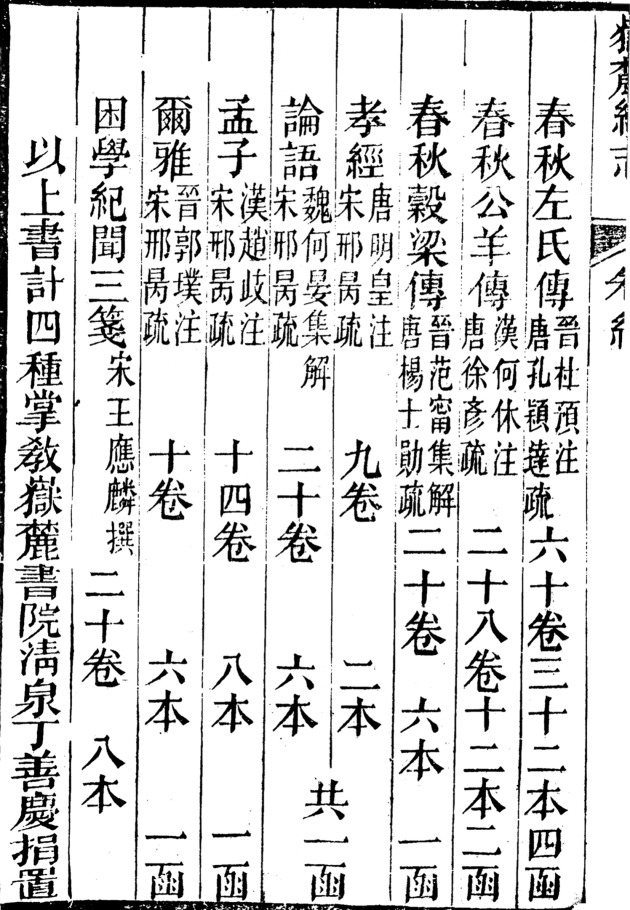 嶽麓續志
春秋左氏傳 晉杜預注 唐孔穎達疏 六十卷 三十二本 四函
春秋公羊傳 漢何休注 唐徐彥疏 二十八卷 十二本 二函
春秋穀梁傳 晉范甯集解 唐楊士勛疏 二十卷 六本 一函
孝經 唐明皇注 宋邢昺疏 九卷 二本
論語 魏何晏集解 宋邢昺疏 二十卷 六本 共一函
孟子 漢趙歧注 宋邢昺疏 十四卷 八本 一函
爾雅 晉郭璞注 宋邢昺疏 十卷 六本 一函
困學紀聞三箋 宋王應麟撰 二十卷 八本
以上書計四種掌教嶽麓書院清泉丁善慶捐置